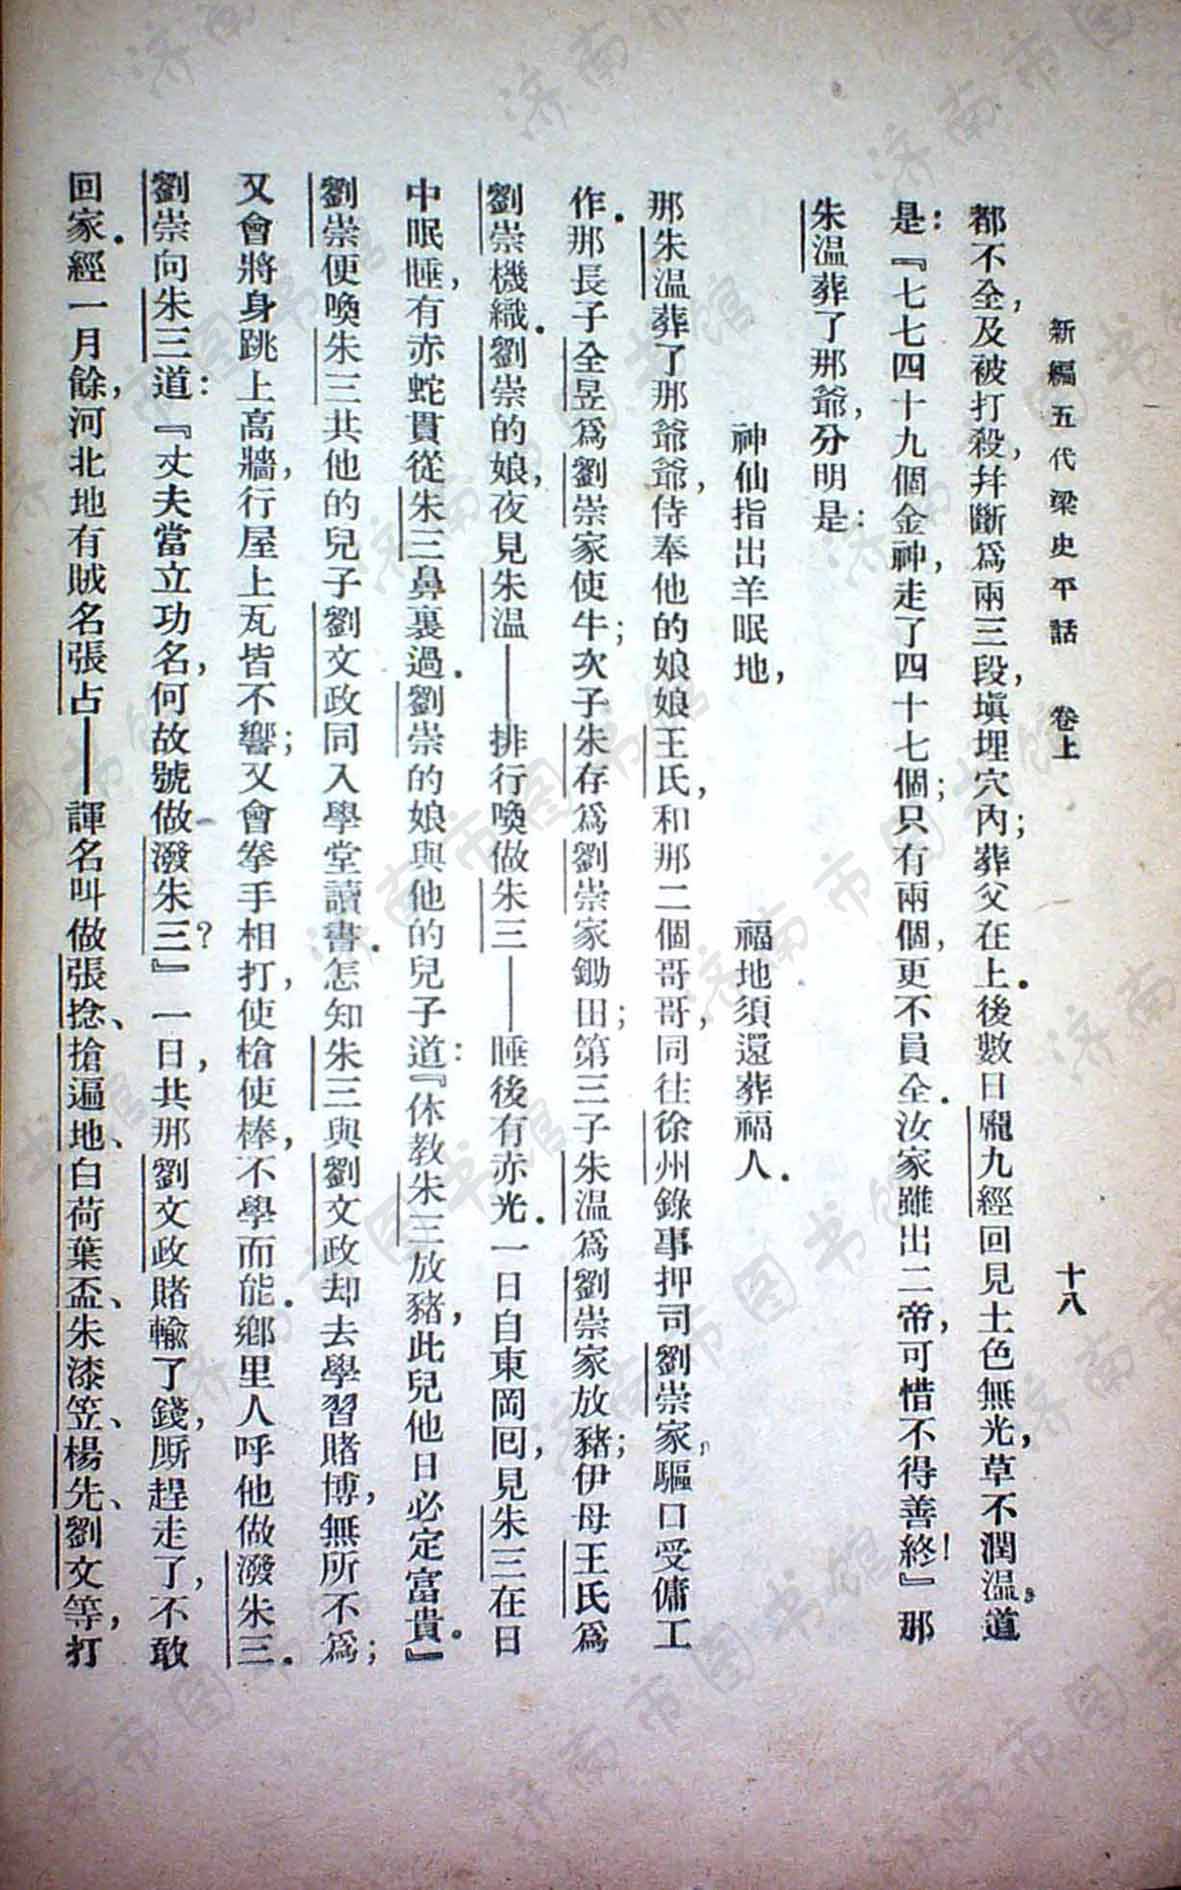 新編五代梁史平話　卷上　十八
都不全，及被打殺，幷斷爲兩三段，塡埋穴內；葬父在上．後數日龐九經回見土色無光，草不潤溫，道
是：『七七四十九個金神，走了四十七個；只有兩個，更不員全．汝家雖出二帝，可惜不得善終！』那
朱溫葬了那爺，分明是：
神仙指出羊眠地，　福地須還葬福人．
那朱溫葬了那爺爺，侍奉他的娘娘王氏，和那二個哥哥，同往徐州錄事押司劉崇家，驅口受傭工
作．那長子全昱爲劉崇家使牛；次子朱存爲劉崇家鋤田；第三子朱溫爲劉崇家放豬；伊母王氏爲
劉崇機織．劉崇的娘，夜見朱溫——排行喚做朱三——睡後有赤光．一日自東岡囘，見朱三在日
中眠睡，有赤蛇貫從朱三鼻裏過．劉崇的娘與他的兒子道：『休教朱三放豬，此兒他日必定富貴．』
劉崇便喚朱三共他的兒子劉文政同入學堂讀書．怎知朱三與劉文政却去學習賭博，無所不爲；
又會將身跳上高牆，行屋上瓦皆不響；又會拳手相打，使槍使棒，不學而能．鄉里人呼他做潑朱三．
劉崇向朱三道：『丈夫當立功名，何故號做潑朱三？』一日，共那劉文政賭輸了錢，厮趕走了，不敢
回家．經一月餘，河北地有賊名張占——諢名叫做張捻、搶遍地、白荷葉盃、朱漆笠、楊先、劉文等，打